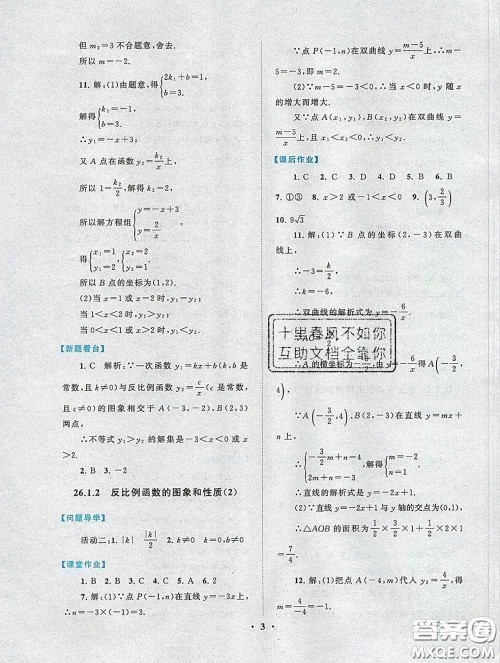 但 m₂=3 不合题意,舍去.
所以 m=-2.
11. 解:(1)由题意,得{2k₁+b=1, b=3.
解得{k₁=-1, b=3.
∴y₁=-x+3;
又 A 点在函数 y₂=k₂/x 上,
所以 1=k₂/2,解得 k₂=2,
所以解方程组{y=-x+3 y=2/x
得{x₁=1 y₁=2 {x₂=2 y₂=1.
所以 B 点的坐标为(1,2).
(2)当 x=1 或 x=2 时,y₁=y₂;
当 1<x<2 时,y₁>y₂;
当 0<x<1 或 x>2 时,y₁<y₂.
【新题看台】
1. C 解析:∵一次函数 y₁=kx+b(k,b 是
常数,且 k≠0)与反比例函数 y₂=c/x(c 是常数,
且 c≠0)的图象相交于 A(-3,-2),B(2,3)
两点,
∴不等式 y₁>y₂ 的解集是-3<x<0 或
x>2.
2. B 3. -2
26.1.2 反比例函数的图象和性质(2)
【问题导学】
活动二:1. |k| |k|/2 2. k≠0 k≠0 b≠0
【课堂作业】
1. B 2. B 3. C 4. C 5. A 6. 2
7. 解:(1)∵点 P(-1,n)在直线 y=-3x 上,
∴n=-3×(-1)=3.
∵点 P(-1,n)在双曲线 y=m-5/x 上,
∴m-5=-3,即 m=2.
(2)∵m-5=-3<0,∴当 x<0 时,y 随 x
的增大而增大.
又∵点 A(x₁,y₁),B(x₂,y₂)在双曲线 y=
m-5/x 上,且 x₁<x₂<0,∴y₁<y₂.
【课后作业】
1. C 2. D 3. D 4. A 5. C 6. B
7. ①③ 8. x>2 或-1<x<0 9. (3, 2/3)
10. 9√3
11. 解:(1)∵B 点的坐标(2,-3)在双曲
线上,
∴-3=k/2,
∴k=-6,
∴双曲线的解析式为 y=-6/x.
十里春风不如你
互助文档全靠你
得 A(-3/2,
4),
∵A(-3/2,4),B(2,-3)在直线 y=mx+
n 上,
∴{-3/2m+n=4, 2m+n=-3, 解得{m=-2, n=1,
∴直线的解析式为 y=-2x+1.
(2)∵直线与 y 轴的交点为(0,1),
∴△AOB 的面积为 1/2×1×3/2+1/2×1×2
=7/4.
12. 解:(1)把点 A(-4,m)代入 y₂=4/x,得
m=4/-4=-1.
· 3 ·
答案圈
MXQE.COM